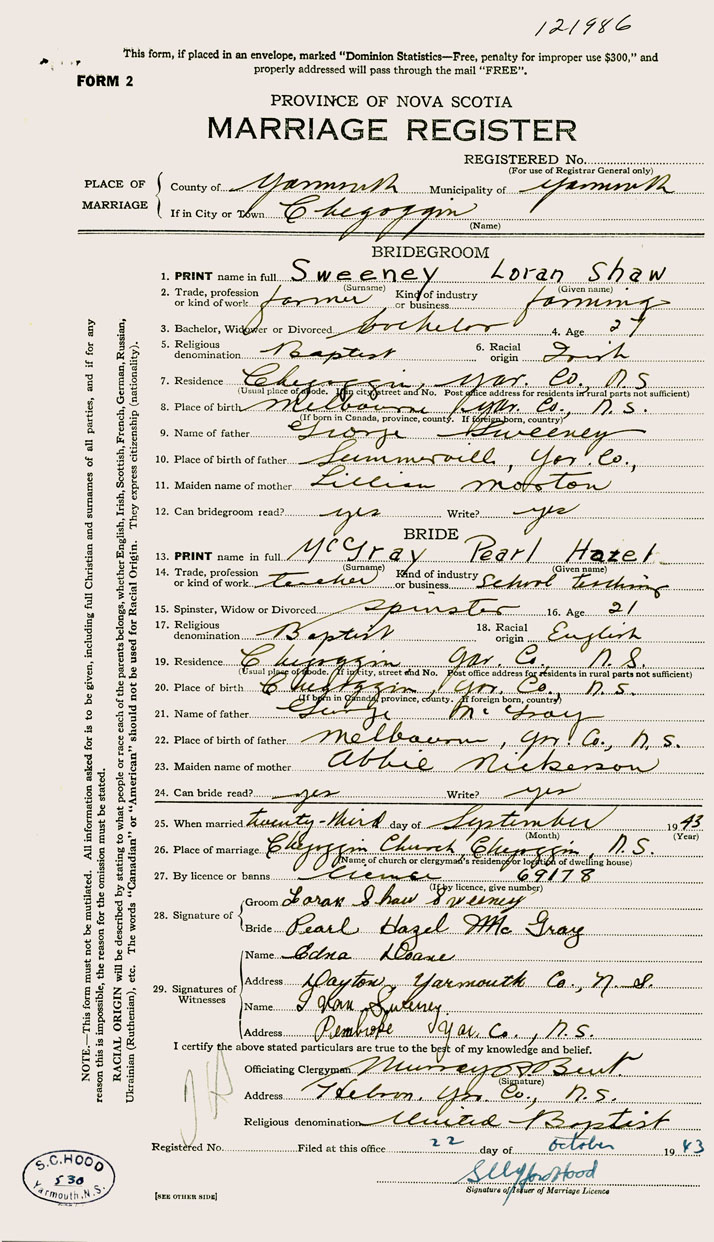 121986
This form, if placed in an envelope, marked "Dominion Statistics—Free, penalty for improper use $300," and
properly addressed will pass through the mail "FREE".
FORM 2
PROVINCE OF NOVA SCOTIA
MARRIAGE REGISTER
REGISTERED No.
(For use of Registrar General only)
PLACE OF MARRIAGE
County of Yarmouth Municipality of Yarmouth
If in City or Town Chegoggin
(Name)
BRIDEGROOM
1. PRINT name in full Sweeney Loran Shaw
(Surname) (Given name)
2. Trade, profession or kind of work farmer Kind of industry or business farming
3. Bachelor, Widower or Divorced bachelor 4. Age 27
5. Religious denomination Baptist 6. Racial origin Irish
7. Residence Chegoggin, Yar. Co., N.S.
(Usual place of abode. If in city, street and No. Post office address for residents in rural parts not sufficient)
8. Place of birth Melbourne, Yar. Co., N.S.
(If born in Canada, province, county. If foreign born, country)
9. Name of father George Sweeney
10. Place of birth of father Summerville, Yar. Co.,
11. Maiden name of mother Lillian Morton
12. Can bridegroom read? yes Write? yes
BRIDE
13. PRINT name in full McGray Pearl Hazel
(Surname) (Given name)
14. Trade, profession or kind of work teacher Kind of industry or business School teaching
15. Spinster, Widow or Divorced spinster 16. Age 21
17. Religious denomination Baptist 18. Racial origin English
19. Residence Chegoggin Yar. Co., N.S.
(Usual place of abode. If in city, street and No. Post office address for residents in rural parts not sufficient)
20. Place of birth Chegoggin, Yar. Co., N.S.
(If born in Canada, province, county. If foreign born, country)
21. Name of father George McGray
22. Place of birth of father Melbourne, Yar. Co., N.S.
23. Maiden name of mother Abbie Nickerson
24. Can bride read? yes Write? yes
25. When married twenty-third day of September 1943
(Month) (Year)
26. Place of marriage Chegoggin Church, Chegoggin, N.S.
(Name of church or clergyman's residence or location of dwelling house)
27. By licence or banns license 69178
(If by licence, give number)
28. Signature of
Groom Loran Shaw Sweeney
Bride Pearl Hazel McGray
29. Signatures of Witnesses
Name Edna Doane
Address Dayton, Yarmouth Co., N.S.
Name Sweeney
Address Pembroke Yar. Co., N.S.
I certify the above stated particulars are true to the best of my knowledge and belief.
Officiating Clergyman Murray Bent
(Signature)
Address Hebron, Yar. Co., N.S.
Religious denomination United Baptist
Registered No. Filed at this office 22 day of October 1943
Hood
Signature of Issuer of Marriage Licence
[SEE OTHER SIDE]
S.C. HOOD
530
Yarmouth, N.S.
NOTE.—This form must not be mutilated. All information asked for is to be given, including full Christian and surnames of all parties, and if for any
reason this is impossible, the reason for the omission must be stated.
RACIAL ORIGIN will be described by stating to what people or race each of the parents belongs, whether English, Irish, Scottish, French, German, Russian,
Ukrainian (Ruthenian), etc. The words "Canadian" or "American" should not be used for Racial Origin. They express citizenship (nationality).